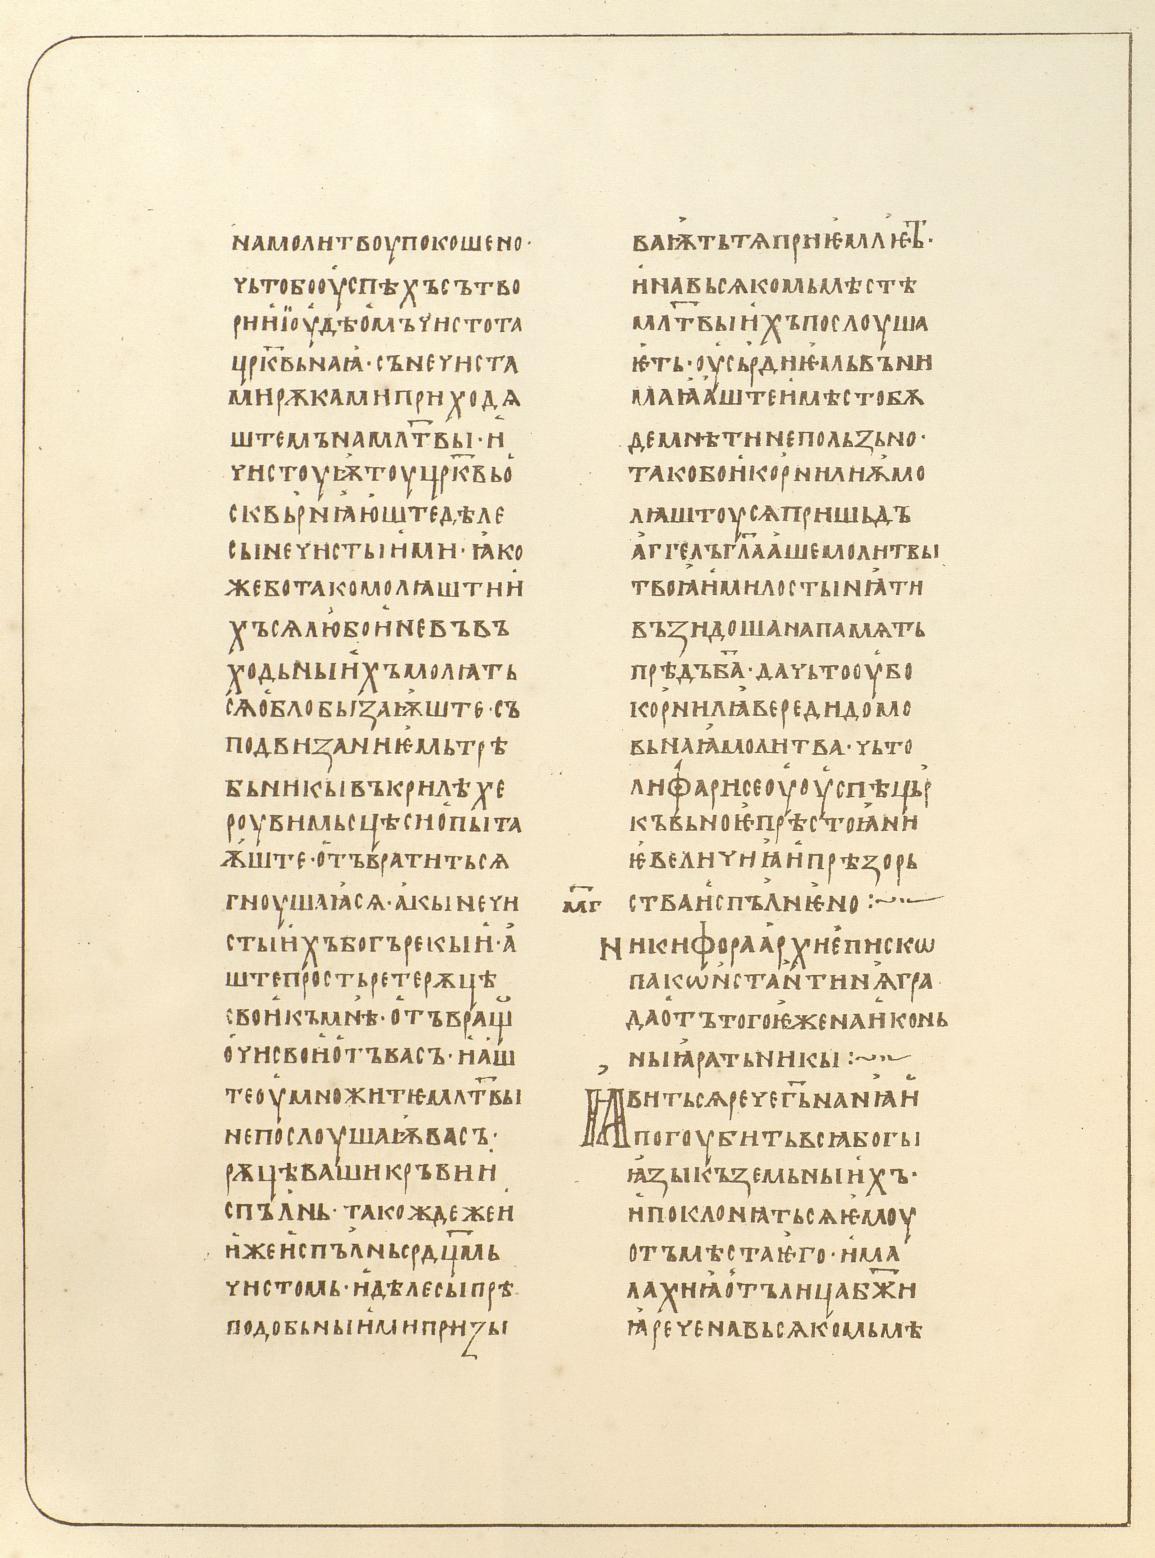 на молитвоу покошено·
чьто бо оуспѣхъ сътво
ри иїоудѣомъ чистота
цр҃кꙑвьнаꙗ· съ нечиста
ми рѫками приходѧ
штемъ на млт҃вꙑ· и
чистоуѭ тоу цр҃квь о
сквьрнꙗюште дѣле
сꙑ нечистꙑими· ꙗко
же бо тако молꙗштии
хъ сѧ любо и невъвъ
ходьнꙑихъ молꙗть
сѧ облобꙑзаѭште· съ
подвизаниѥмь трѣ
бьникꙑ въкрилѣ хе
роувимьсцѣ сноптꙑа
ѫште· отъвратитьсѧ
гноушаꙗсѧ· акꙑ нечи
стꙑихъ богъ рекꙑи· а
ште простьрете рѫцѣ
свои къ мнѣ· отъвращ
очи свои отъ васъ· и аш
те оумножите млт҃вꙑ
не послоушаѭ васъ·
рѫцѣ ваши кръви и
спълнь· такожде же и
иже испълнь срдц҃мь
чистомь· и дѣлесꙑ прѣ
подобьнꙑими призꙑ
ваѭть тѧ приѥмлѥт҃ъ·
и на вьсѧкомь мѣстѣ
млт҃вꙑ ихъ послоуша
ѥть· оусьрдиѥмь въни
маꙗ аште и мѣсто бѫ
де мнѣти не пользьно·
тако бо и корнилиѫ мо
лꙗштоусѧ пришьдъ
аггелъ гл҃аше молитвꙑ
твоꙗ и милостꙑнꙗ ти
възидоша на памѧть
прѣдъ б҃а· да чьто оубо
корнилꙗ вереди домо
вьнаꙗ молитва· чьто
ли фарисеоу оуспѣ цьр
къвьноѥ прѣстоꙗни
ѥ величиꙗ и прѣзорь
ства испълнѥно :~
м҃г
Никифора архиепискѡ
па кѡнстантинѧ гра
да отъ того ѥже на иконь
нꙑꙗ ратьникꙑ :~
Ꙗвитьсѧ рече г҃ь на нꙗ и
погоубить всꙗ богꙑ
ꙗзꙑкъ земьнꙑихъ·
и поклонꙗтьсѧ ѥмоу
отъ мѣста ѥго· и ма
лахиꙗ отъ лица бж҃и
ꙗ рече на вьсѧкомь мѣ